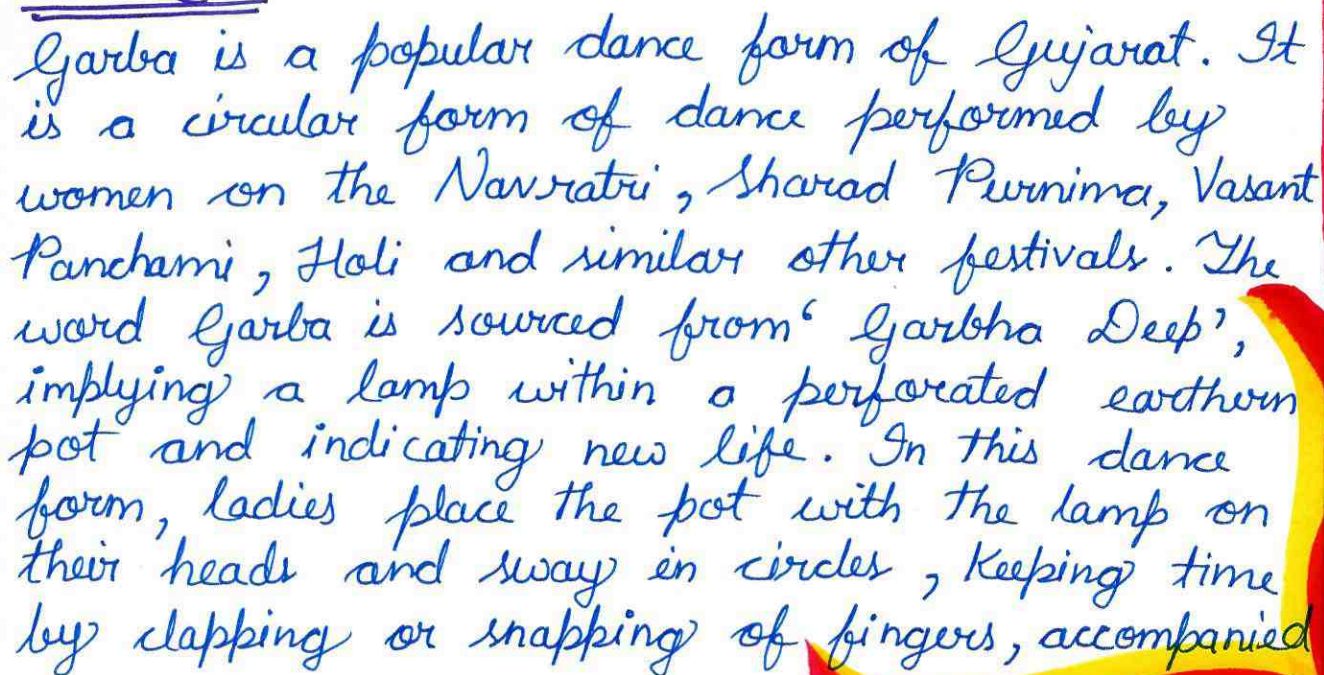 Garba is a popular dance form of Gujarat. It
is a circular form of dance performed by
women on the Navratri, Sharad Purnima, Vasant
Panchami, Holi and similar other festivals. The
word Garba is sourced from ‘Garbha Deep’,
implying a lamp within a perforated earthern
pot and indicating new life. In this dance
form, ladies place the pot with the lamp on
their heads and sway in circles, keeping time
by clapping or snapping of fingers, accompanied